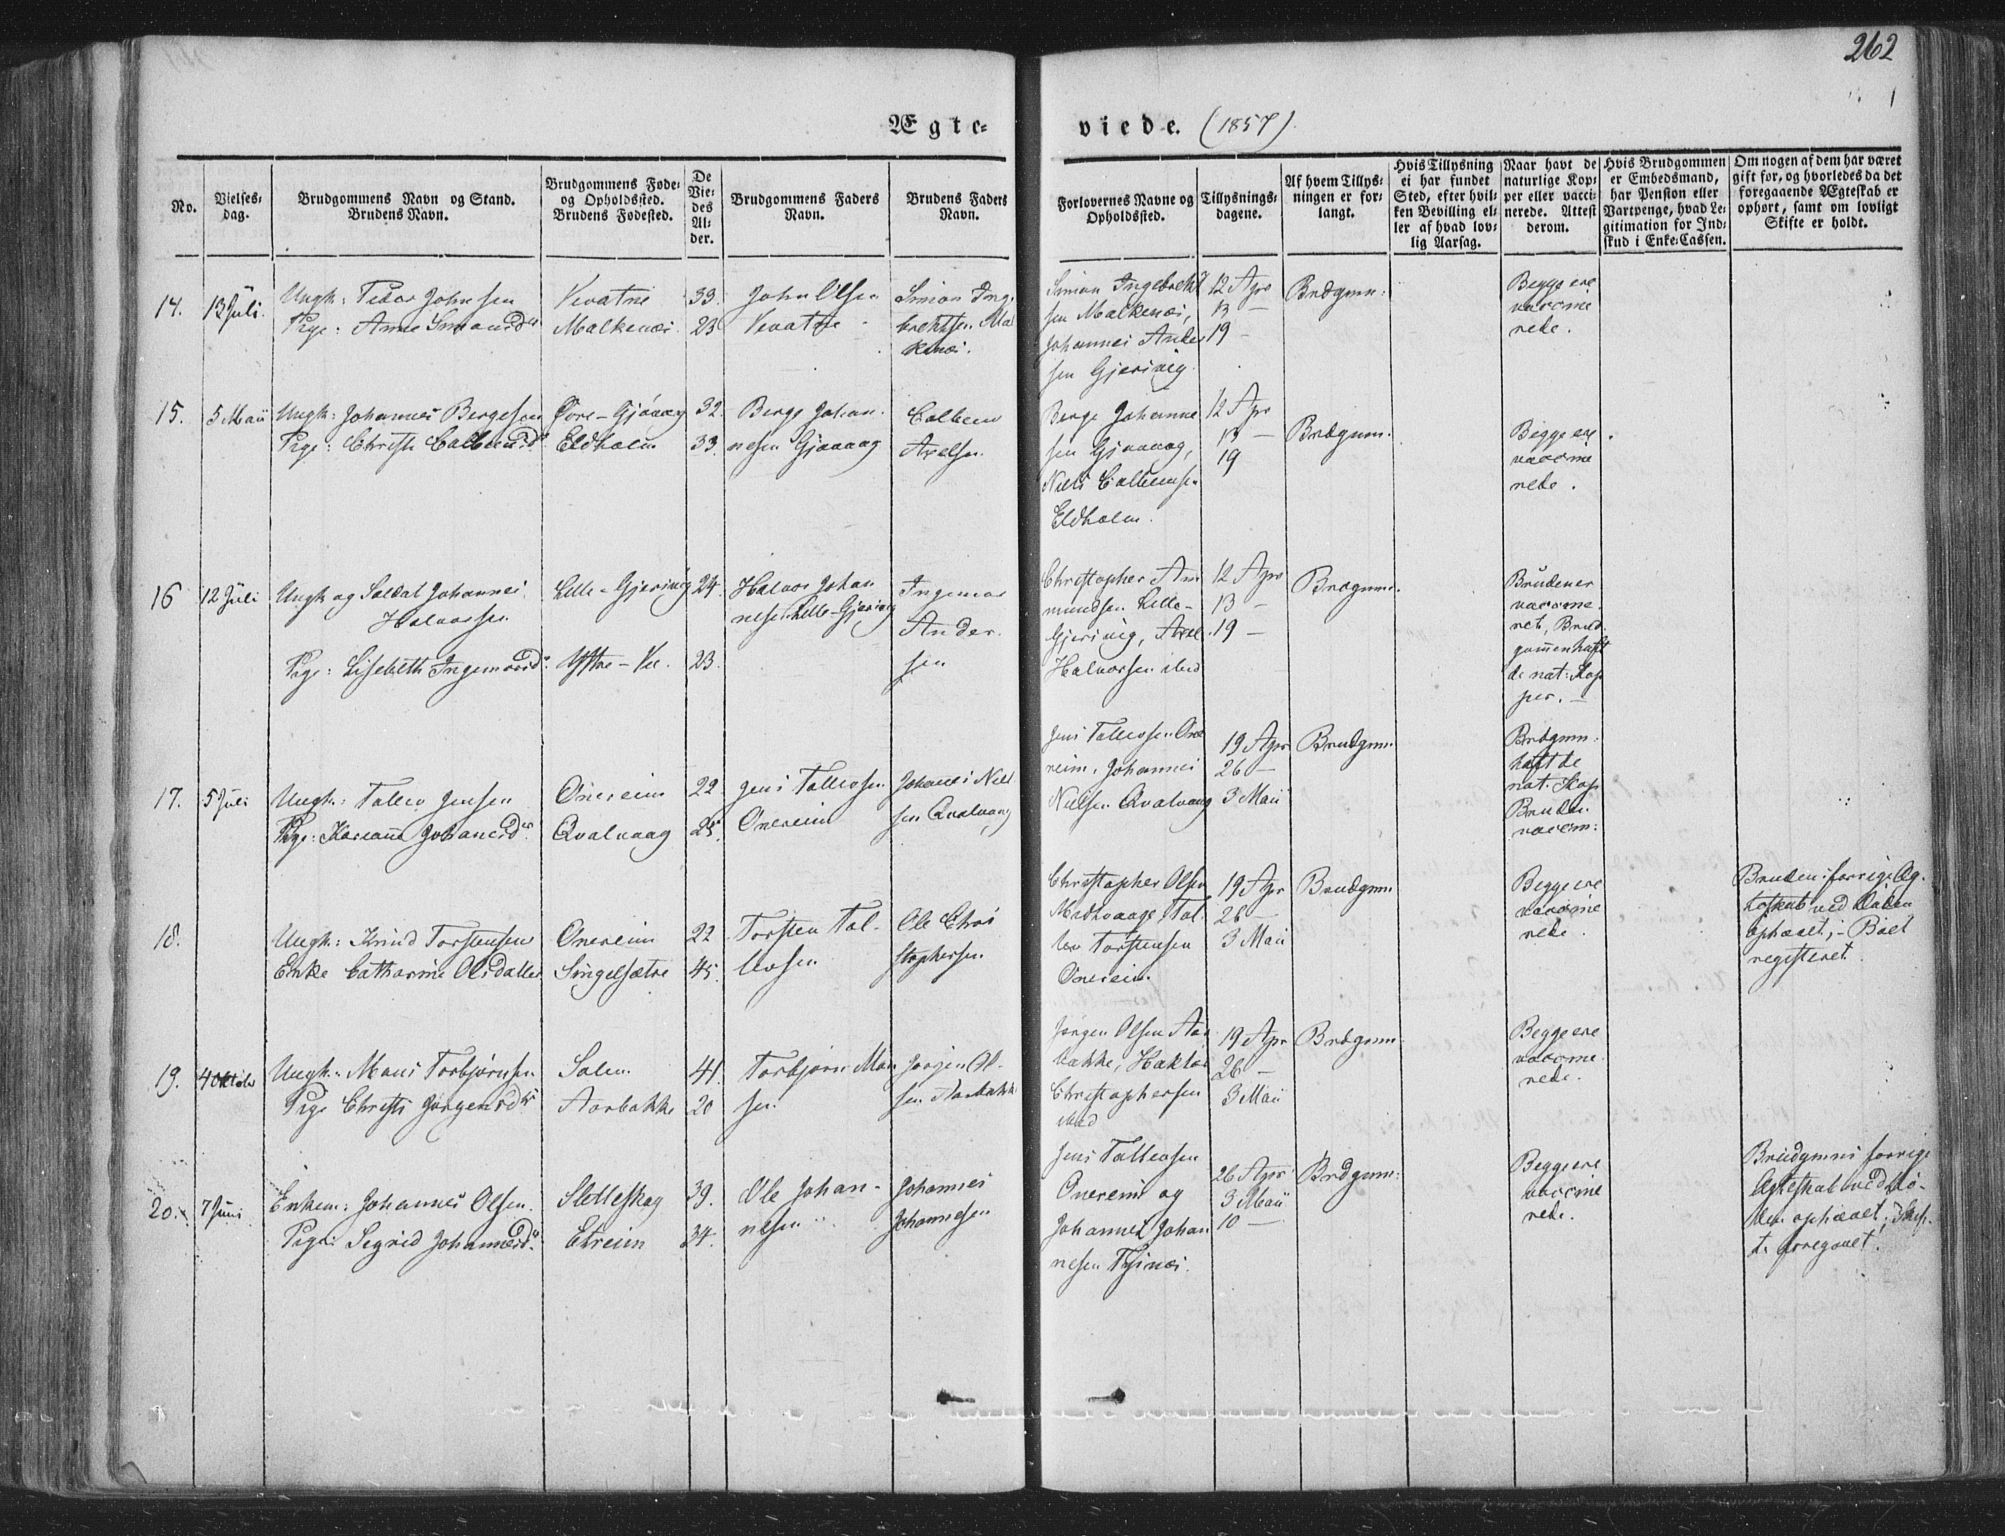 262
Ægte-
viede. (1857).
No.
Vielses-
dag.
Brudgommens Navn og Stand.
Brudens Navn.
Brudgommens Føde-
og Opholdssted.
Brudens Fødested.
De
Vie-
des
Al-
der.
Brudgommens Faders
Navn.
Brudens Faders
Navn.
Forlovernes Navne og
Opholdssted.
Tillysnings-
dagene.
Af hvem Tillys-
ningen er for-
langt.
Hvis Tillysning
ei har fundet
Sted, efter hvil-
ken Bevilling el-
ler af hvad lov-
lig Aarsag.
Naar havt de
naturlige Kop-
per eller vacci-
nerede. Attest
derom.
Hvis Brudgommen
er Embedsmand,
har Pension eller
Vartpenge, hvad Le-
gitimation for Ind-
skud i Enke-Cassen.
Om nogen af dem har været
gift før, og hvorledes da det
foregaaende Ægteskab er
ophørt, samt om lovligt
Skifte er holdt.
14.
13 Juli.
Ungk: Peder Johnsen
Pige: Anne Simonsdr
Malkenæs.
33.
23
John Olsen
Simon Inge
brektsen Mal
kenæs.
Simon Ingebrekt
sen Malkenæs,
Johannes Ander
sen Gjersvig.
12 Apr
13 —
19 —
Brdgmn:
Begge ere
vaccine
rede.
15.
5 Maii
Ungk: Johannes Bergesen
Pige: Christi Colbeinsdr
Øvre-Gjøvaag
Eldholm
32.
33.
Berge Johan-
nesen Gjøvaag
Colbein
Axelsen
Berge Johanne
sen Gjøvaag,
Niels Colbeinsen
Eldholm.
12 Apr
13 —
19
Brdgmn.
Begge ere
vaccine
rede.
16
12 Juli
Ungk og Soldat Johannes
Halvorsen
Pige: Lisebeth Ingemorsdr.
Lille-Gjersvig
24.
23.
Halvor Johan
nesen Lille-Gjersvig
Ingemor
Ander-
sen
Christopher Am
mundsen Lille-
Gjersvig, Axel
Halvorsen ibid
12 Apr
13 —
19 —
Brdgmn.
Bruden er
vaccine-
ret, Brud-
gommen haft
de nat: Kop
per. —
17.
5 Juli
Ungk: Tollev Jensen
Pige: Karianna Johannesdr
Onereim
Qvalvaag
22.
25.
Jens Tollevsen
Onereim
Johannes Niel
sen Qvalvaag
Jens Tollevsen One
reim, Johannes
Nielsen Qvalvaag
19 Apr
26 —
3 Maii
Brudgmn
Brdgmn:
haft de
nat: Kop
Bruden
vaccin:
18.
Ungk: Knud Torstensen
Enke Catharine Olsdatter
Onereim
Singelsætre
22
45.
Torsten Tol-
levsen
Ole Chri
stophersen
Christopher Olsen
Tol-
lev Torstensen
Onereim.
19 Apr
26 —
3 Maii
Brudgmn
Begge ere
vaccine
rede.
Bruden: forrige Æg-
teskab ved Døden
ophævet, — Boet
registeret.
19.
4 Oktobr
Ungk: Mons Torbjørnsen
Pige Christi Jørgensdr
Solem
Aarbakke
41.
20
Torbjørn Mon
sen
Jørgen Ol-
sen Aarbakke
Jørgen Olsen Aar
bakke, Haktor
Christophersen
ibid
19 Apr
26 —
3 Maii
Brdgmn.
Begge ere
vaccine
rede.
20.
7 Juni
Enkem: Johannes Olsen
Pige: Sigrid Johannesdr.
Sletteskog
Etreim
39.
34.
Ole Johan-
nesen
Johannes
Johannesen
Jens Tollevsen
Onereim og
Johannes Johan
nesen Tysnæs.
26 Apr
3 Maii
10 —
Brdgmn:
Begge ere
vaccine
rede.
Brudgmns forrige
Ægteskab ved Dø-
den ophævet; Skif-
te foregaaet.